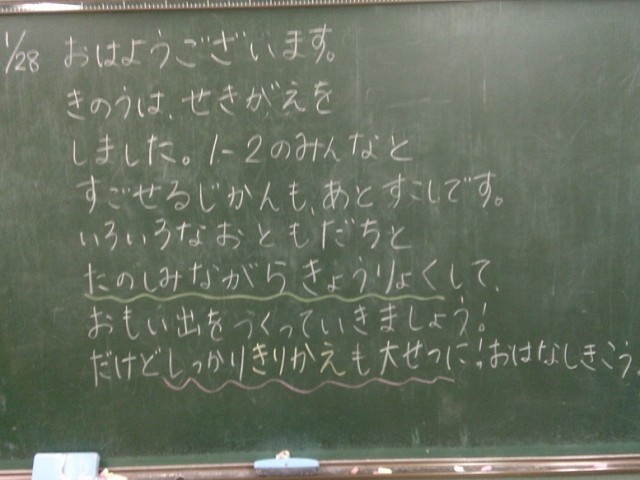 1/28 おはようございます。
きのうは、せきがえを
しました。1-2のみんなと
すごせるじかんも、あとすこしです。
いろいろなおともだちと
たのしみながらきょうりょくして、
おもい出をつくっていきましょう!
だけどしっかりきりかえも大せつに!おはなしきこう。